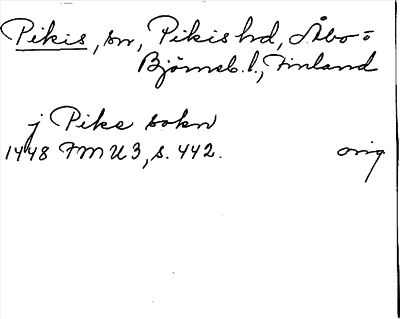 Pikis, sn, Pikis hd, Åbo=
Björneb. l., Finland
j Pike sokn
1448 FMU 3, s. 442. orig